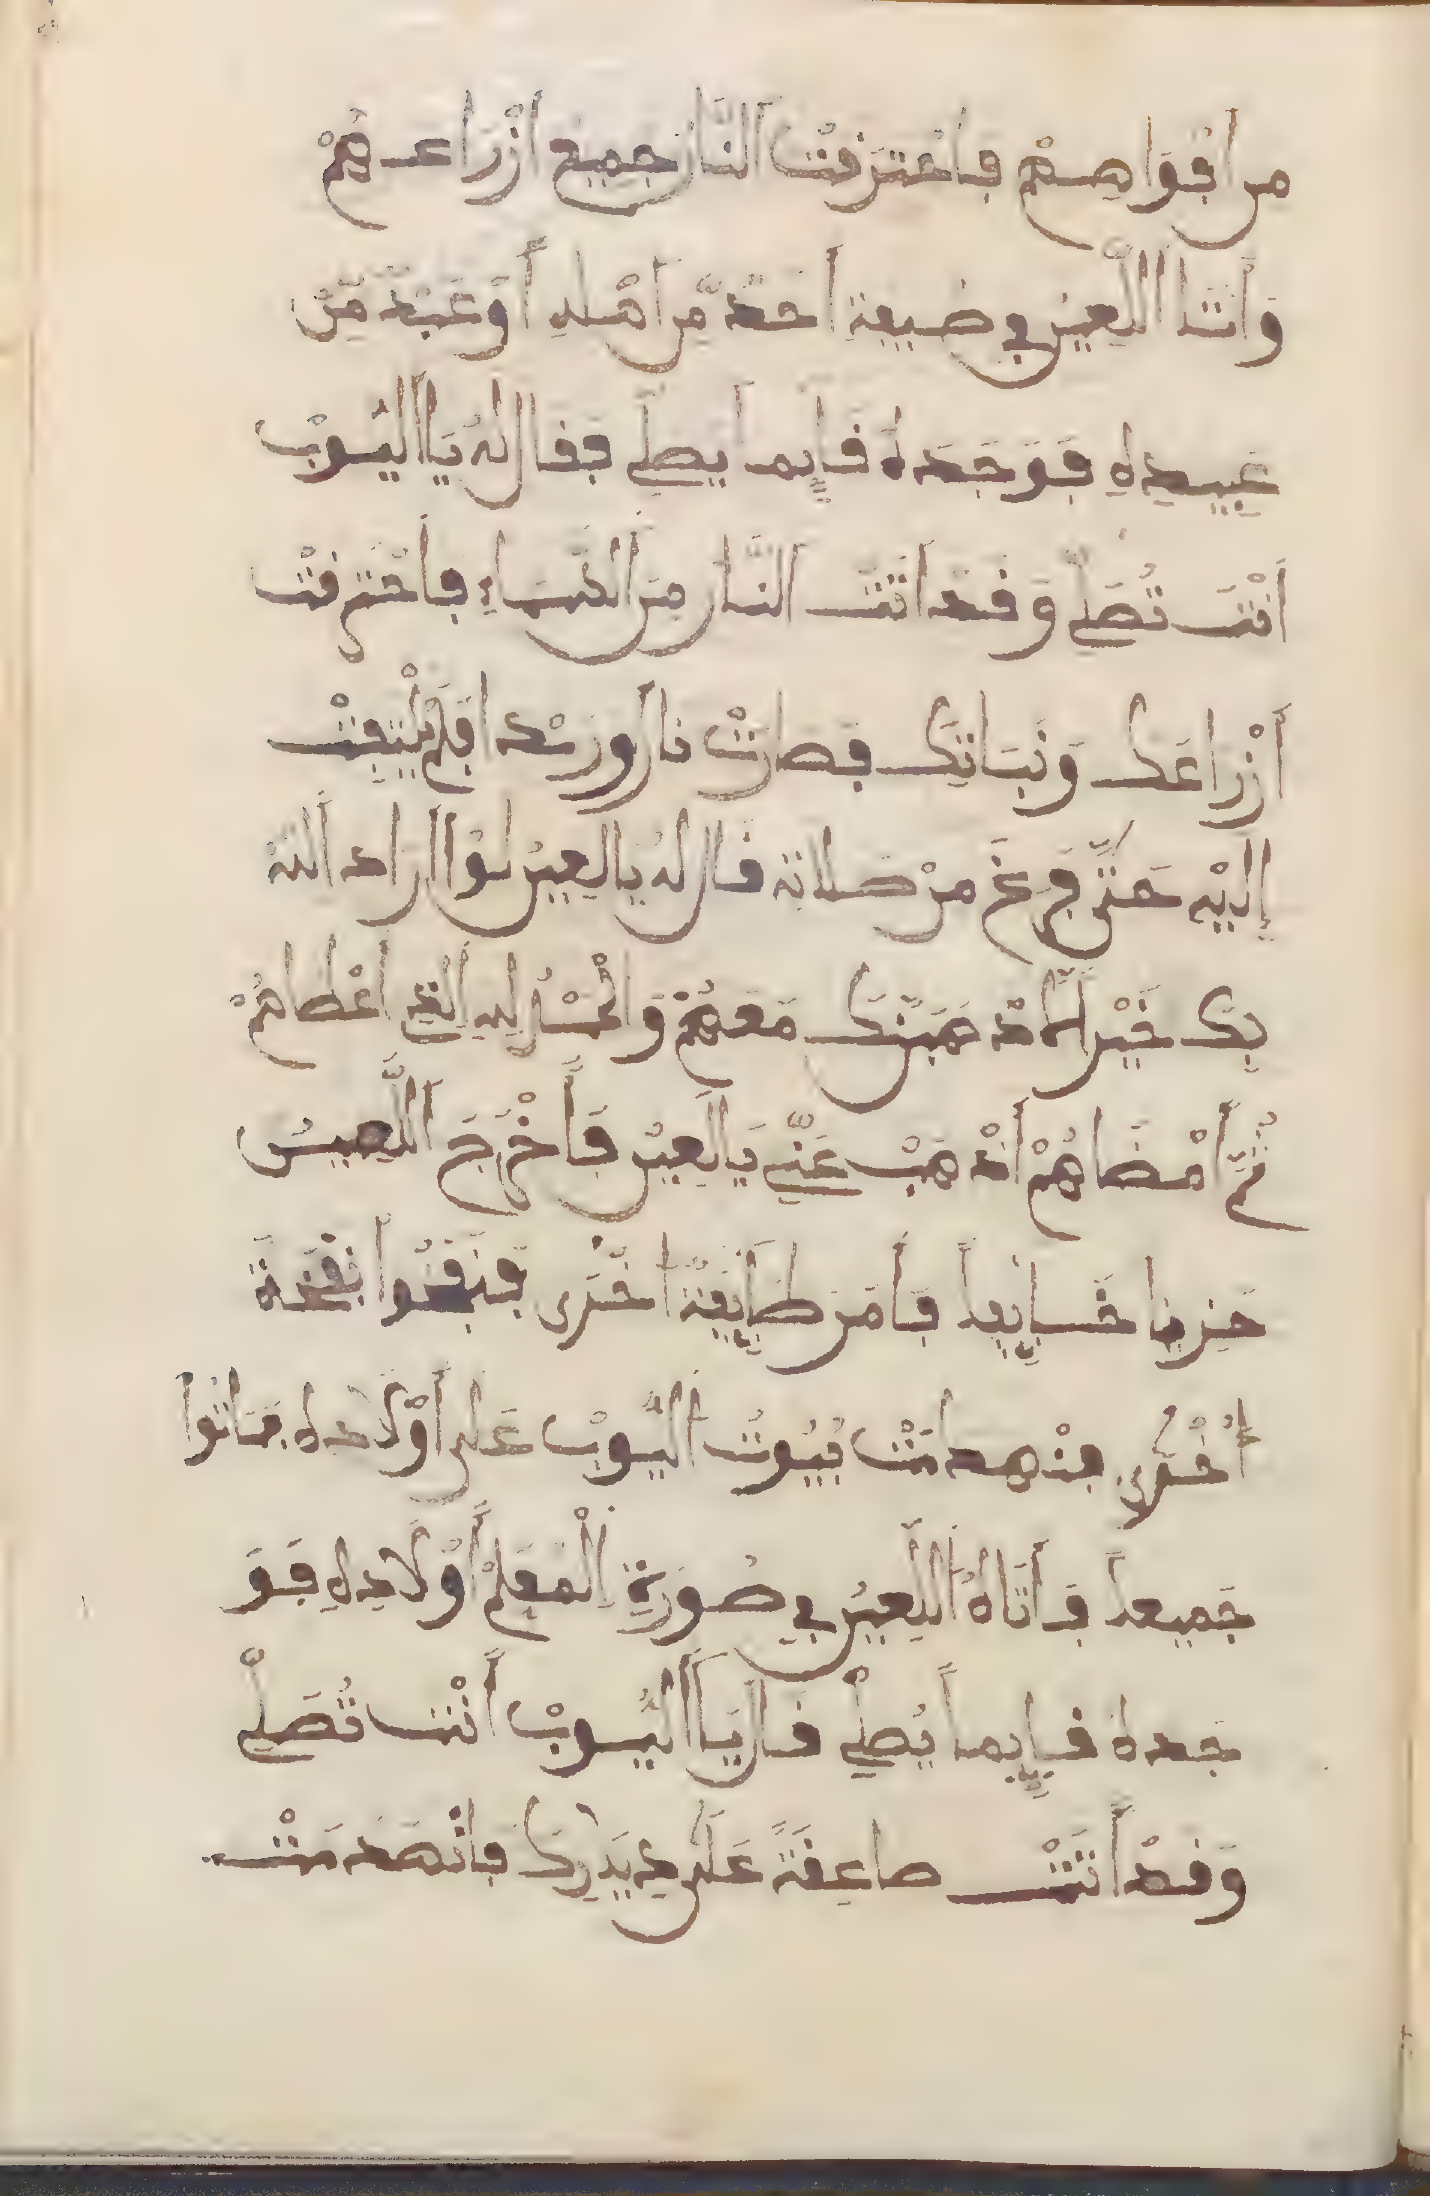 من افواههم فاحترقت النار جميع ازراعهم
وَأتا اللعين في ضيعة احد من اهله أو عبد من
عبيده فوجده قايما يصلي فقال له يا اليوب
أنت تصلي وقد اتت النار من السماء فاحترقت
أزراعك ونباتك فصارت نارا ورمدا فلم يلتفت
إليه حتى فرغ من صلاته قال له يا لعين لو اراد الله
بك خير لذهبتك معهم والحمد لله الذي اعطاهم
ثم أمضاهم أذهب عني يا لعين فأخرج اللعين
حزينا خايعا فأمر طايفة اخرى فنفخوا نفخة
أخرى فنهدمت بيوت اليوب على أولاده فماتوا
جميعا فأتاه اللعين في صورة المعلم أولاده فو
جده قايما يصلي قال يا اليوب أنت تصلي
وقد أتت صاعقة على ديارك فانهدمت